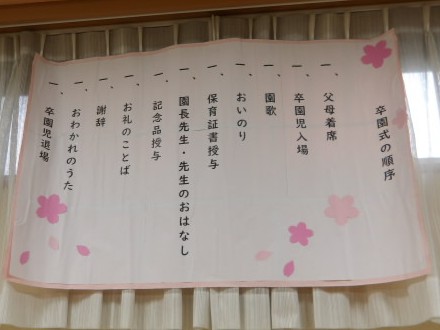 卒園式の順序
一、父母着席
一、卒園児入場
一、園歌
一、おいのり
一、保育証書授与
一、園長先生・先生のおはなし
一、記念品授与
一、お礼のことば
一、謝辞
一、おわかれのうた
一、卒園児退場